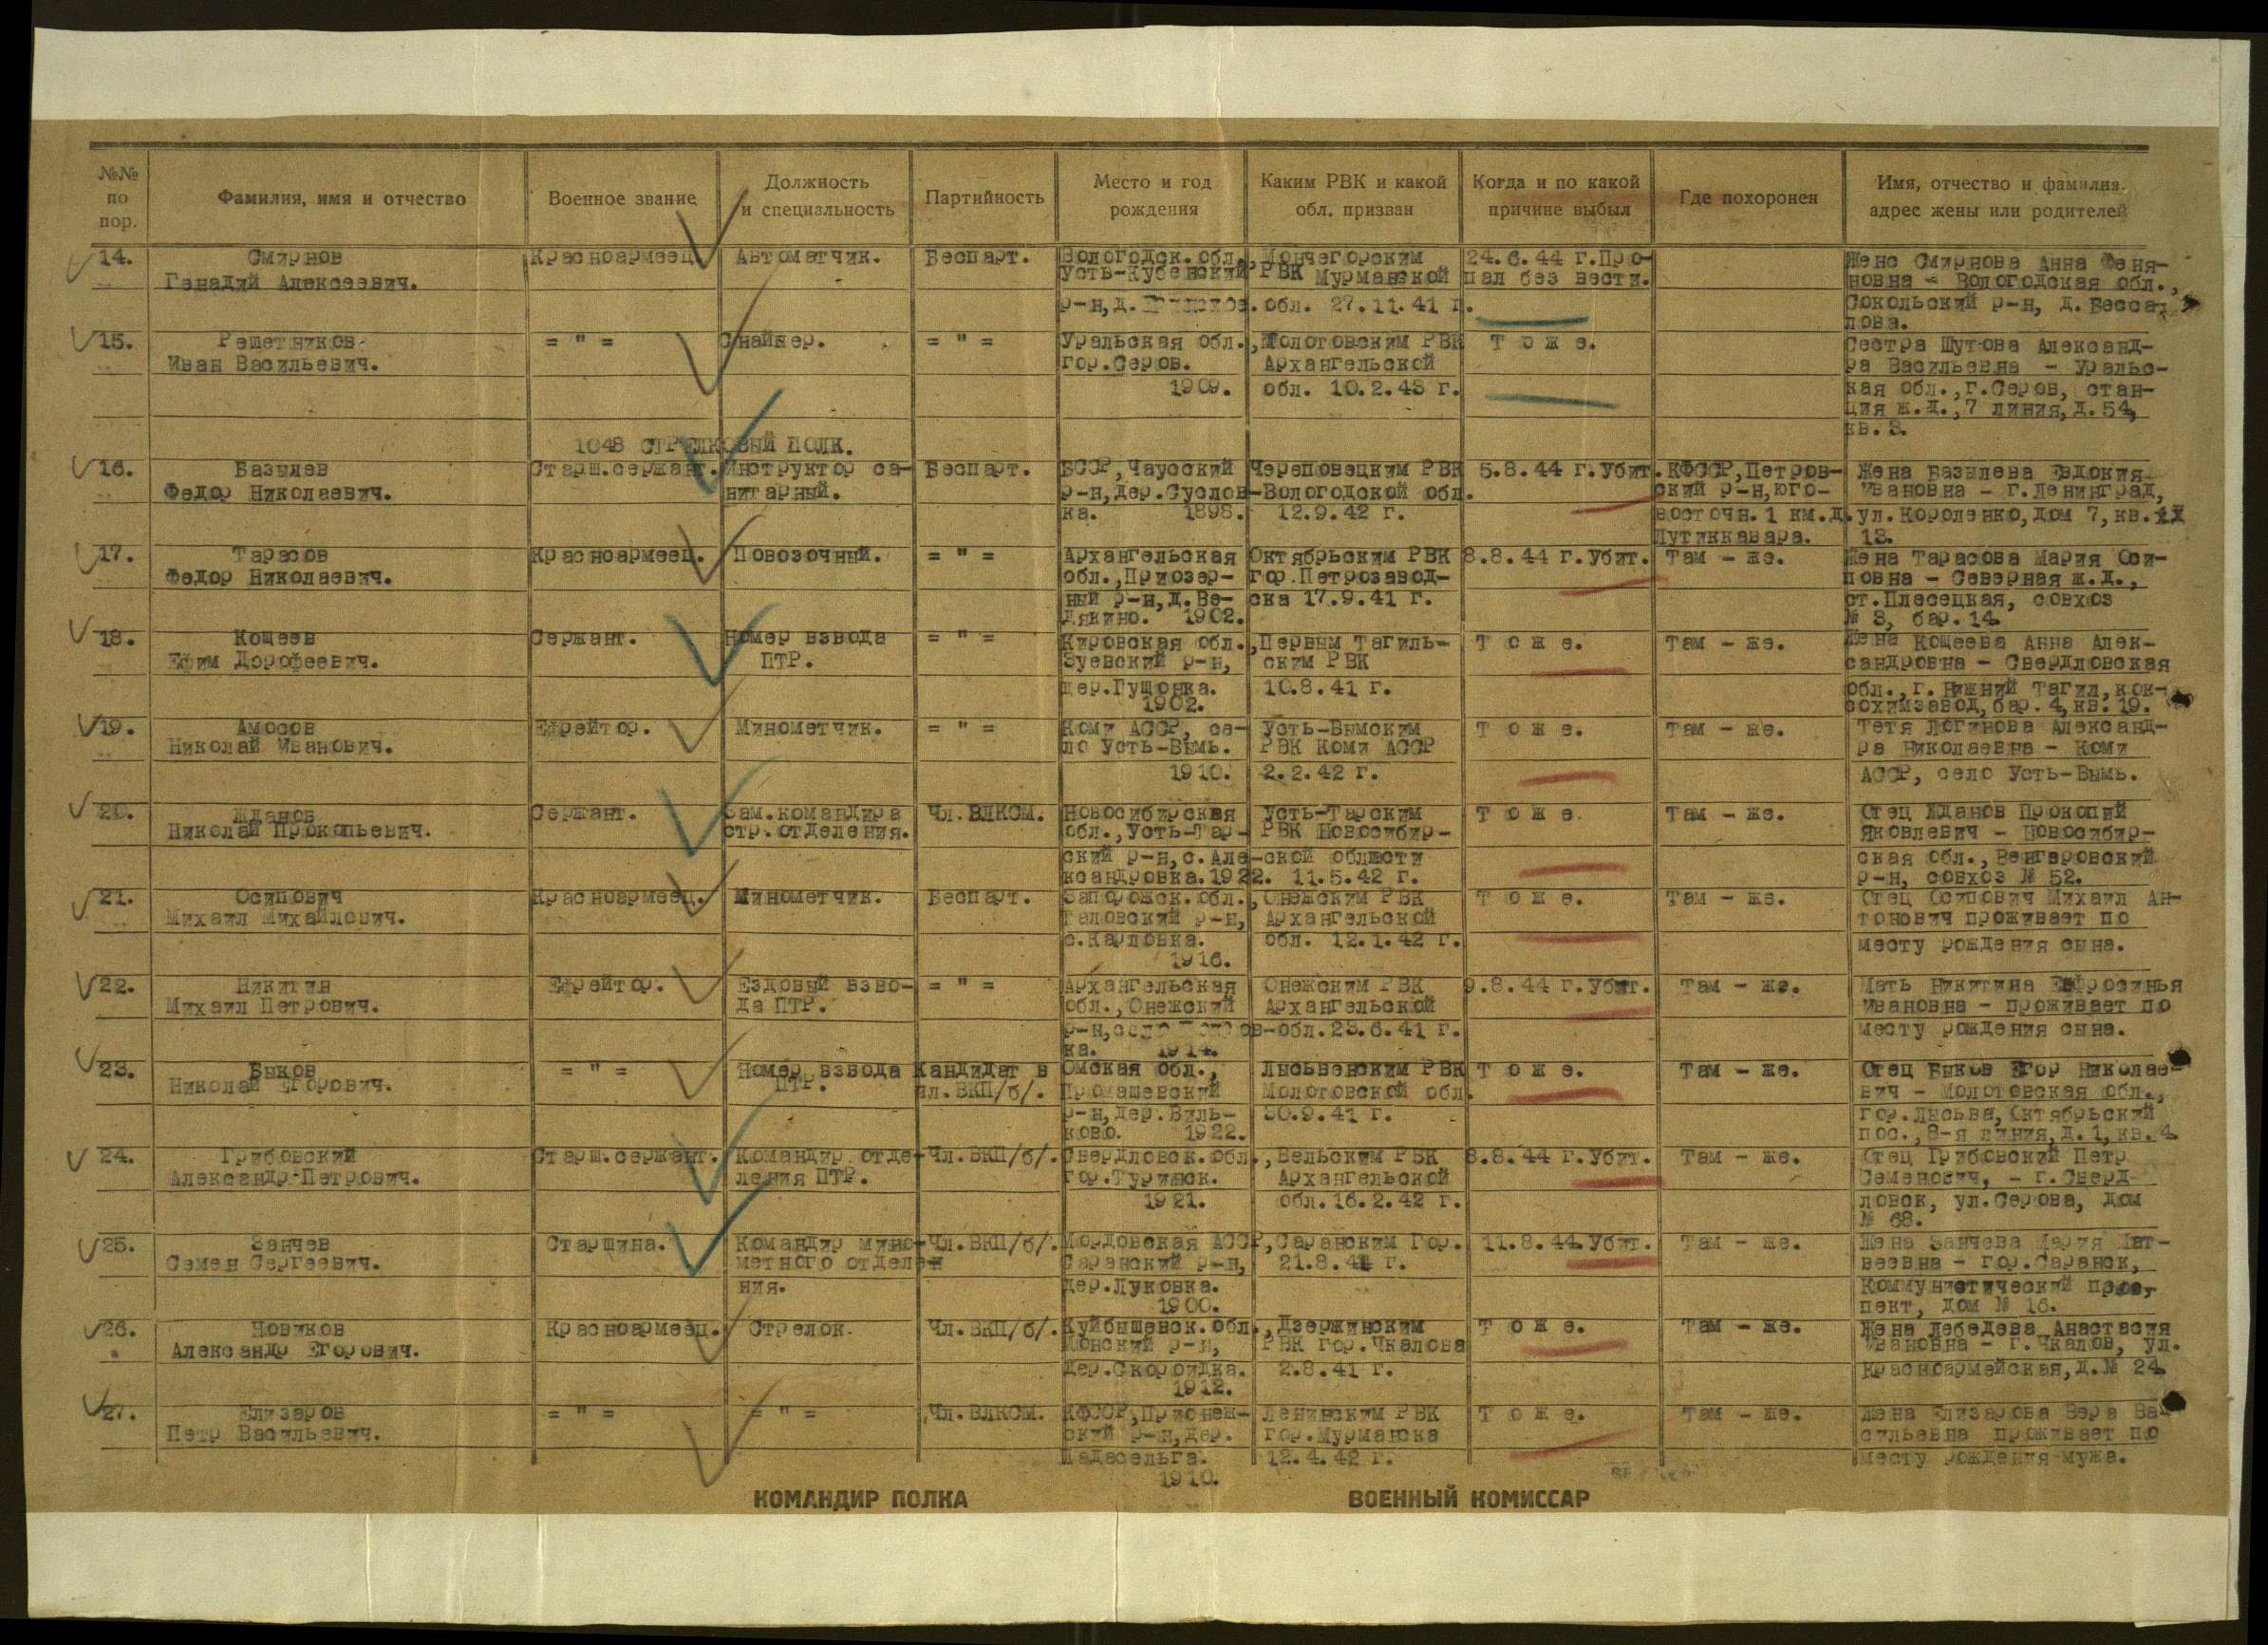 №№ по пор.
Фамилия, имя и отчество
Военное звание
Должность и специальность
Партийность
Место и год рождения
Каким РВК и какой обл. призван
Когда и по какой причине выбыл
Где похоронен
Имя, отчество и фамилия. адрес жены или родителей
14. Смирнов Красноармеец Автоматчик. Беспарт. Вологодск.обл., Мончегорским 24.6.44 г.Про- Жена Смирнова Анна Феня-
Генадий Алексеевич. Усть-Кубенский РВК Мурманской пал без вести. новна - Вологодская обл.,
р-н,д. обл. 27.11.41 г. Сокольский р-н, д. Бесса-
лова.
15. Решетников = " = Снайпер. = " = Уральская обл., Молотовским РВК Т о ж е. Сестра Шутова Александ-
Иван Васильевич. гор.Серов. Архангельской ра Васильевна - Уральс-
1909. обл. 10.2.43 г. кая обл.,г.Серов, стан-
ция ж.д.,7 линия,д.54,
кв.3.
1048 СТРЕЛКОВЫЙ ПОЛК.
16. Базылев Старш.сержант. Инструктор са- Беспарт. БССР,Чаусский Череповецким РВК 5.8.44 г.Убит. КФССР,Петров- Жена Базылева Евдокия
Федор Николаевич. нитарный. р-н,дер.Суслов- Вологодской обл. ский р-н,юго- Ивановна - г.Ленинград,
ка. 1898. 12.9.42 г. восточн.1 км.д. ул.Короленко,дом 7,кв.
Лутиккавара. 13.
17. Тарасов Красноармеец. Повозочный. = " = Архангельская Октябрьским РВК 8.8.44 г.Убит. Там - же. Жена Тарасова Мария Оси-
Федор Николаевич. обл.,Приозер- гор.Петрозавод- повна - Северная ж.д.,
ный р-н,д.Ве- ска 17.9.41 г. ст.Плесецкая, совхоз
дякино. 1902. № 3, бар.14.
18. Кощеев Сержант. Номер взвода = " = Кировская обл., Первым Тагиль- Т о ж е. Там - же. Жена Кощеева Анна Алек-
Ефим Дорофеевич. ПТР. Зуевский р-н, ским РВК сандровна - Свердловская
дер.Гущонка. 10.8.41 г. обл.,г.Нижний Тагил,кок-
1902. сохимзавод,бар.4,кв.19.
19. Амосов Ефрейтор. Минометчик. = " = Коми АССР, се- Усть-Вымским Т о ж е. Там - же. Тетя Логинова Александ-
Николай Иванович. ло Усть-Вымь. РВК Коми АССР ра Николаевна - Коми
1910. 2.2.42 г. АССР, село Усть-Вымь.
20. Жданов Сержант. Зам.командира Чл.ВЛКСМ. Новосибирская Усть-Тарским Т о ж е. Там - же. Отец Жданов Прокопий
Николай Прокопьевич. стр.отделения. обл.,Усть-Тар- РВК Новосибир- Яковлевич - Новосибир-
ский р-н,с.Але- ской области ская обл.,Венгеровский
ксандровка.1922. 11.5.42 г. р-н, совхоз № 52.
21. Осипович Красноармеец. Минометчик. Беспарт. Запорожск.обл., Онежским РВК Т о ж е. Там - же. Отец Осипович Михаил Ан-
Михаил Михайлович. Таловский р-н, Архангельской тонович проживает по
с.Карловка. обл. 12.1.42 г. месту рождения сына.
1916.
22. Никитин Ефрейтор. Ездовый взво- = " = Архангельская Онежским РВК 9.8.44 г.Убит. Там - же. Мать Никитина Ефросинья
Михаил Петрович. да ПТР. обл.,Онежский Архангельской Ивановна - проживает по
р-н,село обл.23.6.41 г. месту рождения сына.
ка. 1914.
23. Быков = " = Номер взвода Кандидат в Омская обл., Лысьвенским РВК Т о ж е. Там - же. Отец Быков Егор Николае-
Николай Егорович. ПТР. чл.ВКП/б/. Молотовской обл. вич - Молотовская обл.,
р-н,дер.Виль- 30.9.41 г. гор.Лысьва,Октябрьский
ково. 1922. пос.,8-я линия,д.1,кв.4
24. Грибовский Старш.сержант. Командир отде- Чл.ВКП/б/. Свердловск.обл., Вельским РВК 8.8.44 г.Убит. Там - же. Отец Грибовский Петр
Александр Петрович. ления ПТР. гор.Туринск. Архангельской Семенович, - г.Сверд-
1921. обл.16.2.42 г. ловск, ул.Серова, дом
№ 68.
25. Занчев Старшина. Командир мино- Чл.ВКП/б/. Мордовская АССР, Саранским Гор. 11.8.44.Убит. Там - же. Жена Занчева Мария Мат-
Семен Сергеевич. метного отделе- Саранский р-н, 21.8.41 г. веевна - гор.Саранск,
ния. дер.Луковка. Коммунистический прос-
1900. пект, дом № 16.
26. Новиков Красноармеец. Стрелок. Чл.ВКП/б/. Куйбышевск.обл., Дзержинским Т о ж е. Там - же. Жена Лебедева Анастасия
Александр Егорович. р-н, РВК гор.Чкалова Ивановна - г.Чкалов, ул.
2.8.41 г. Красноармейская,д.№ 24
1912.
27. Елизаров = " = = " = Чл.ВЛКСМ. КФССР,Прионеж- Ленинским РВК Т о ж е. Там - же. Жена Елизарова Вера Ва-
Петр Васильевич. ский р-н,дер. гор.Мурманска сильевна проживает по
12.4.42 г. месту рождения мужа.
1910.
КОМАНДИР ПОЛКА ВОЕННЫЙ КОМИССАР